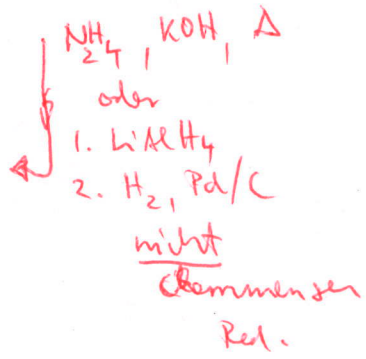 N₂H₄, KOH, Δ
oder
1. LiAlH₄
2. H₂, Pd/C
nicht
Clemmensen
Red.